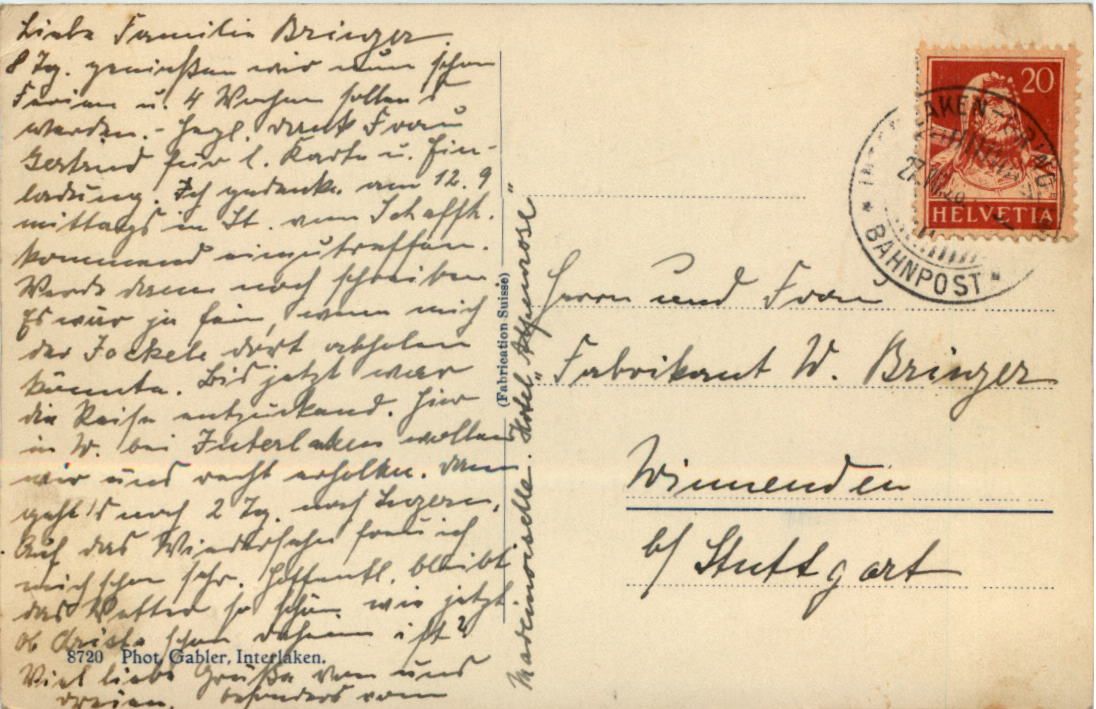 Liebe Familie Bringer
8 Tg. genießen wir nun schon
Ferien u. 4 Wochen sollen's
werden. - Hezl. Dank Frau
Gertrud für l. Karte u. Ein-
ladung. Ich gedenke am 12. 9
mittags in St. von Schaffh.
kommend einzutreffen.
Werde dann noch schreiben
Es wär ja fein, wenn mich
der Jockele dort abholen
könnte. Bis jetzt war
die Reise entzückend. Hier
in W. bei Interlaken wollen
wir uns recht erholen. Dann
geht's noch 2 Tg. nach Luzern.
Auf das Wiedersehn freu ich
mich schon sehr. Hoffentl. bleibt
das Wetter so schön wie jetzt
Ob schon daheim ist?
Viel liebe Grüße von uns
dreien, besonders vom
Mademoiselle. Hotel "Alpenrose"
8720 Phot. Gabler, Interlaken.
(Fabrication Suisse)
20
HELVETIA
BAHNPOST
Herrn und Frau
Fabrikant W. Bringer
Winnenden
b/ Stuttgart